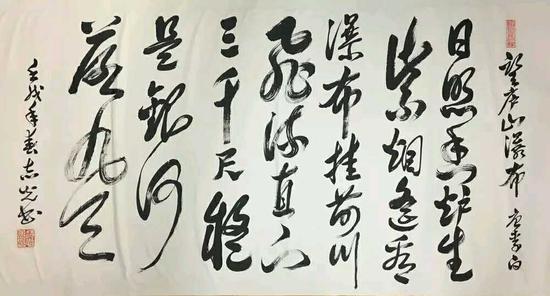 望庐山瀑布 唐李白
日照香炉生
紫烟遥看
瀑布挂前川
飛流直下
三千尺疑
是銀河
落九天
壬戌年春志光书